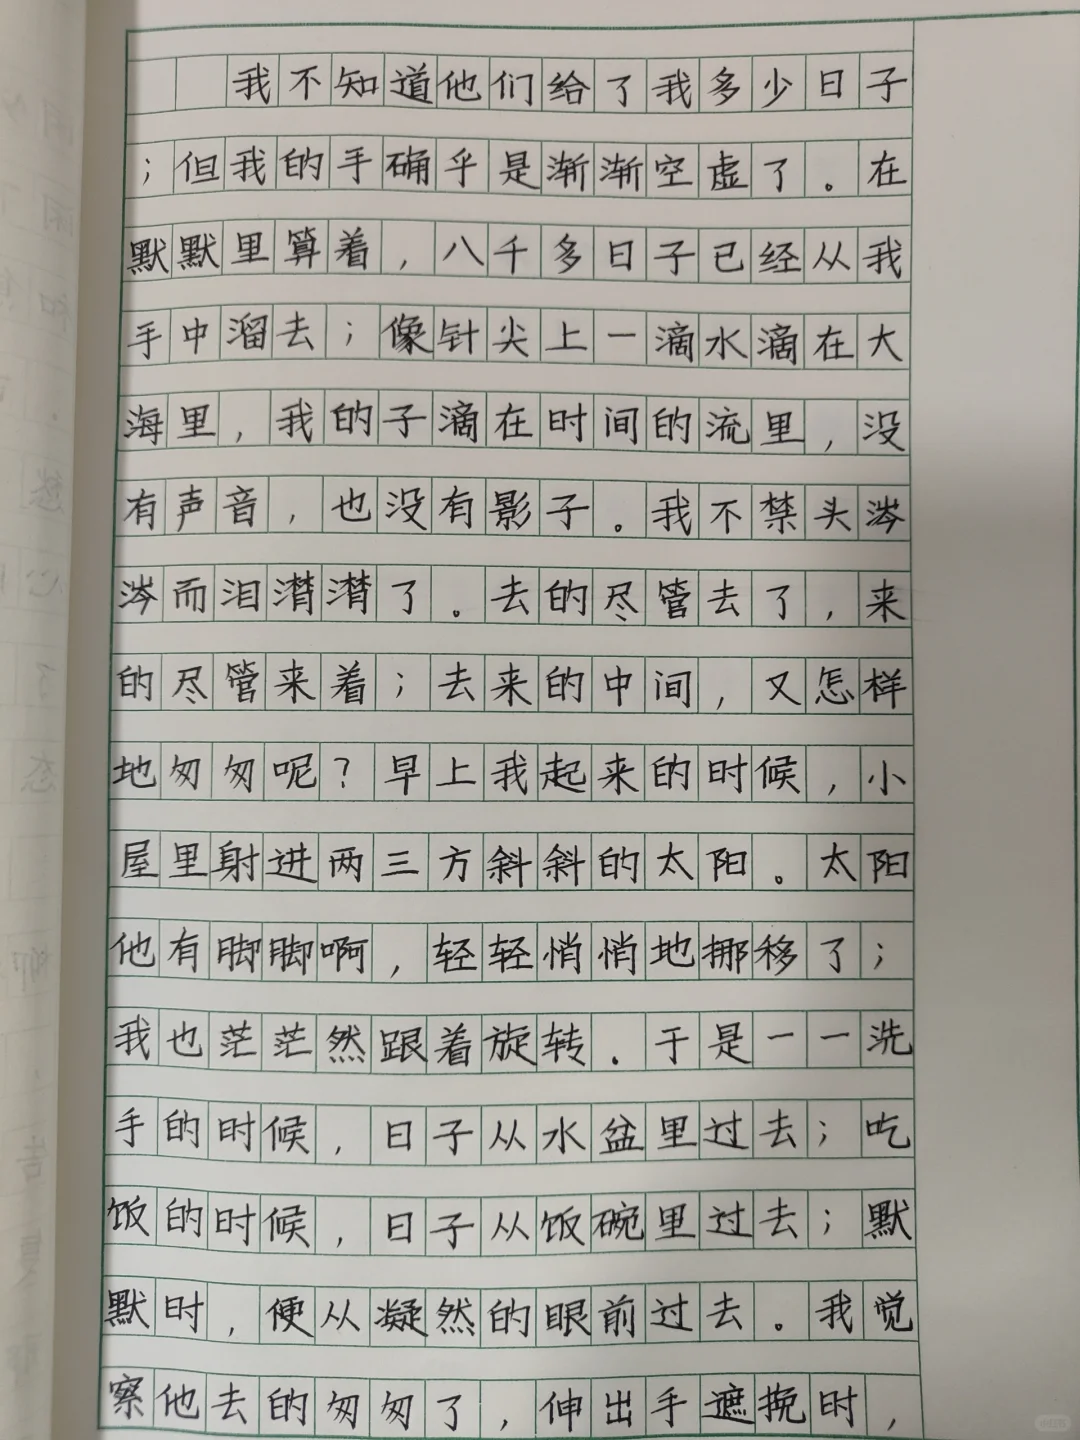 我不知道他们给了我多少日子
；但我的手确乎是渐渐空虚了。在
默默里算着，八千多日子已经从我
手中溜去；像针尖上一滴水滴在大
海里，我的子滴在时间的流里，没
有声音，也没有影子。我不禁头涔
涔而泪潸潸了。去的尽管去了，来
的尽管来着；去来的中间，又怎样
地匆匆呢？早上我起来的时候，小
屋里射进两三方斜斜的太阳。太阳
他有脚脚啊，轻轻悄悄地挪移了；
我也茫茫然跟着旋转．于是一一洗
手的时候，日子从水盆里过去；吃
饭的时候，日子从饭碗里过去；默
默时，便从凝然的眼前过去。我觉
察他去的匆匆了，伸出手遮挽时，